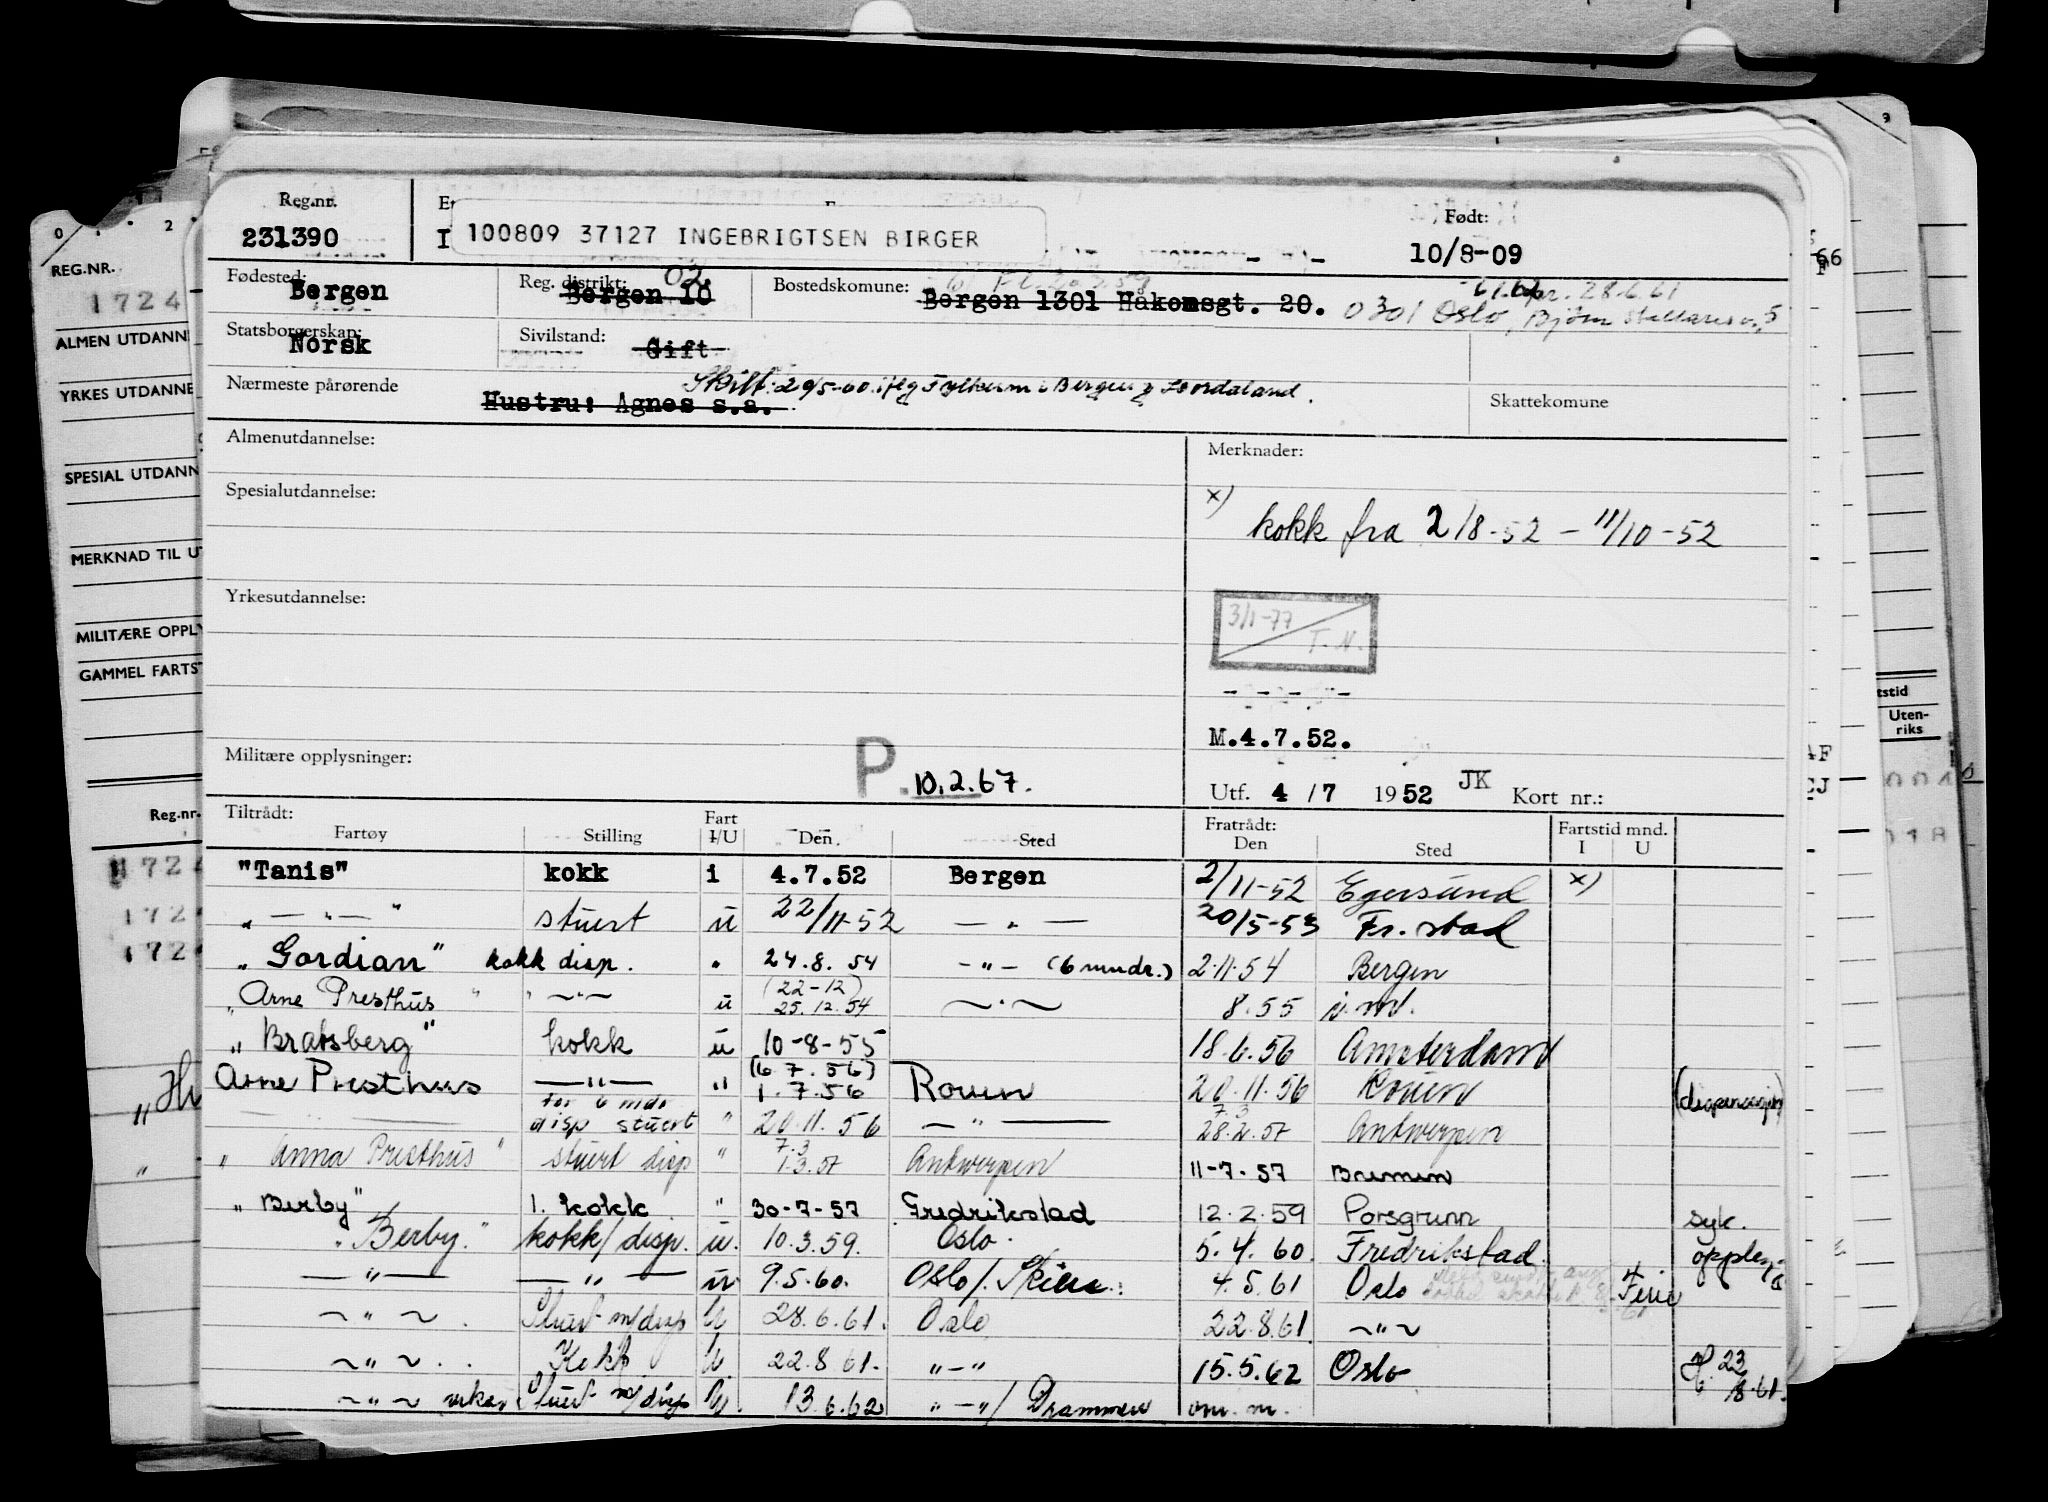 Reg.nr. Et Født:
231390 I 100809 37127 INGEBRIGTSEN BIRGER 10/8-09
Fødested: Reg. distrikt: 02. Bostedskomune: 28.6.61
Bergen Bergen 10 Bergen 1301 Håkonsgt. 20. 0301 Oslo, Bjørn 5
Statsborgerskap: Sivilstand:
Norsk Gift
Nærmeste pårørende Skilt: 29/5-60 iflg Fylkesm i Bergen Hordaland.
Hustru: Agnes s.a. Skattekomune
Almenutdannelse: Merknader:
Spesialutdannelse: x)
kokk fra 2/8-52 - 11/10-52
Yrkesutdannelse: 3/1-77
T.N.
M.4.7.52.
Militære opplysninger: P. 10.2.67. Utf. 4 /7 1952 JK Kort nr.:
Tiltrådt: Fart Fratrådt: Fartstid mnd.
Fartøy Stilling I/U Den Sted Den Sted I U
"Tanis" kokk i 4.7.52 Bergen 2/11-52 Egersund x)
" — " — " stuert u 22/11-52 — " — 20/5-53 Fr.stad
"Gordian" kokk disp. " 24.8.54 - " - (6 mndr.) 2.11.54 Bergen
"Arne Presthus" " ~"~ u (22-12) 25.12.54 ~"~ 8.55
"Bratsberg" kokk u 10-8-55 18.6.56 Amsterdam
Arne Presthus — " — " (6 7.56) 1.7.56 Rouen 20.11.56 Rouen
for 6 mdr disp stuert " 20.11.56 — " — 7.3 28.2.57 Antwerpen
"Anna Presthus" stuert disp " 7.3 1.3.57 Antwerpen 11-7-57 Bremen
"Berby" 1. kokk " 30-7-57 Fredrikstad 12.2.59 Porsgrunn syk.
"Berby." kokk/disp. u. 10.3.59. Oslo. 5.4.60. Fredrikstad.
— " — — " — u 9.5.60. Oslo/. 4.5.61 Oslo Ferie
~ " ~ Stuert m/disp U 28.6.61. Oslo 22.8.61 ~ " ~
~ " ~ . . Kokk U 22.8.61. " - " 15.5.62 Oslo 23
~ " ~ Stuert m/disp U 13.6.62 " - "/ Drammen 8-61.
0 1 2
REG.NR.
1724
ALMEN UTDANN
YRKES UTDANNE
SPESIAL UTDANN
MERKNAD TIL UT
MILITÆRE OPPLY
GAMMEL FARTST
Reg.nr.
1724
172
1724
9
66
F
AF
CJ
tstid
Uten-
riks